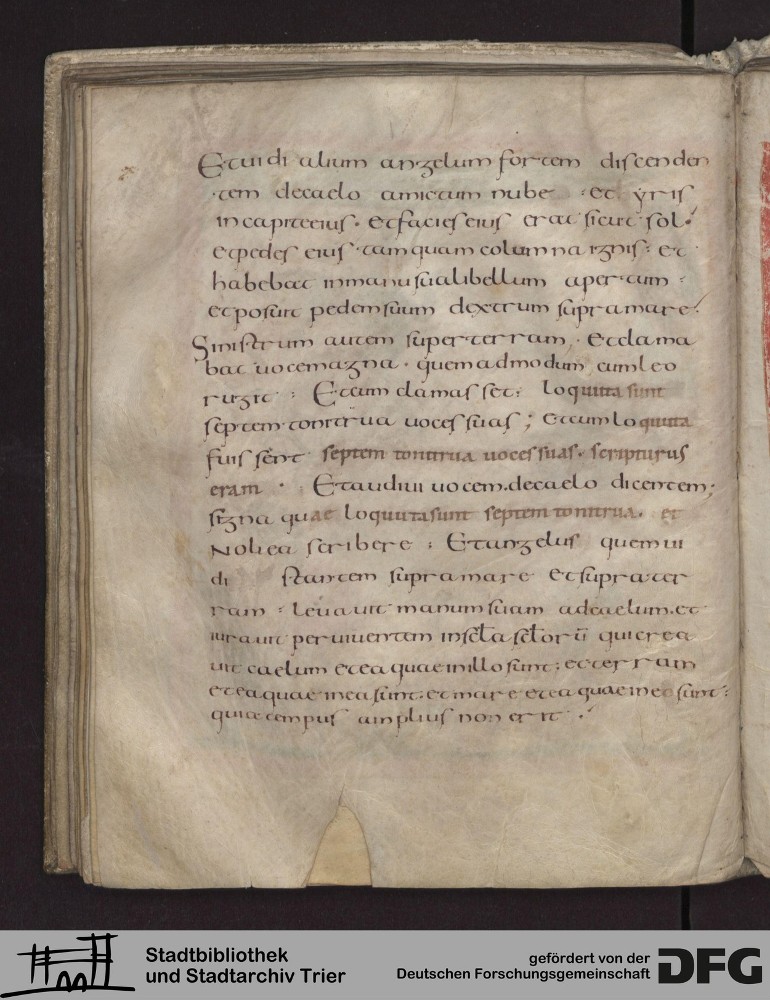 Et uidi alium angelum fortem discenden
tem decaelo amictum nube : et yris
incapiteeius · etfacieseius erat sicut sol ·
etpedes eius tamquam columna ignis : et
habebat inmanu sua libellum apertum :
etposuit pedemsuum dextrum supramare :
Sinistrum autem superterram · etclama
bat uocemagna · quemadmodum cumleo
rugit : Etcum clamasset : loquuta sunt
septem tonitrua uoces suas ; etcumloquuta
fuissent septem tonitrua uoces suas · scripturus
eram · Etaudiui uocem decaelo dicentem ;
signa quae loquuta sunt septem tonitrua · et
Noli ea scribere : Etangelus quem ui
di stantem supramare etsupra ter
ram : leuauit manum suam adcaelum · et
iurauit per uiuentem insc̅la sc̅lorū qui crea
uit caelum etea quae inillo sunt : etterram
etea quae inea sunt : etmare etea quae ineo sunt :
quia tempus amplius non erit ·
Stadtbibliothek
und Stadtarchiv Trier
gefördert von der
Deutschen Forschungsgemeinschaft
DFG